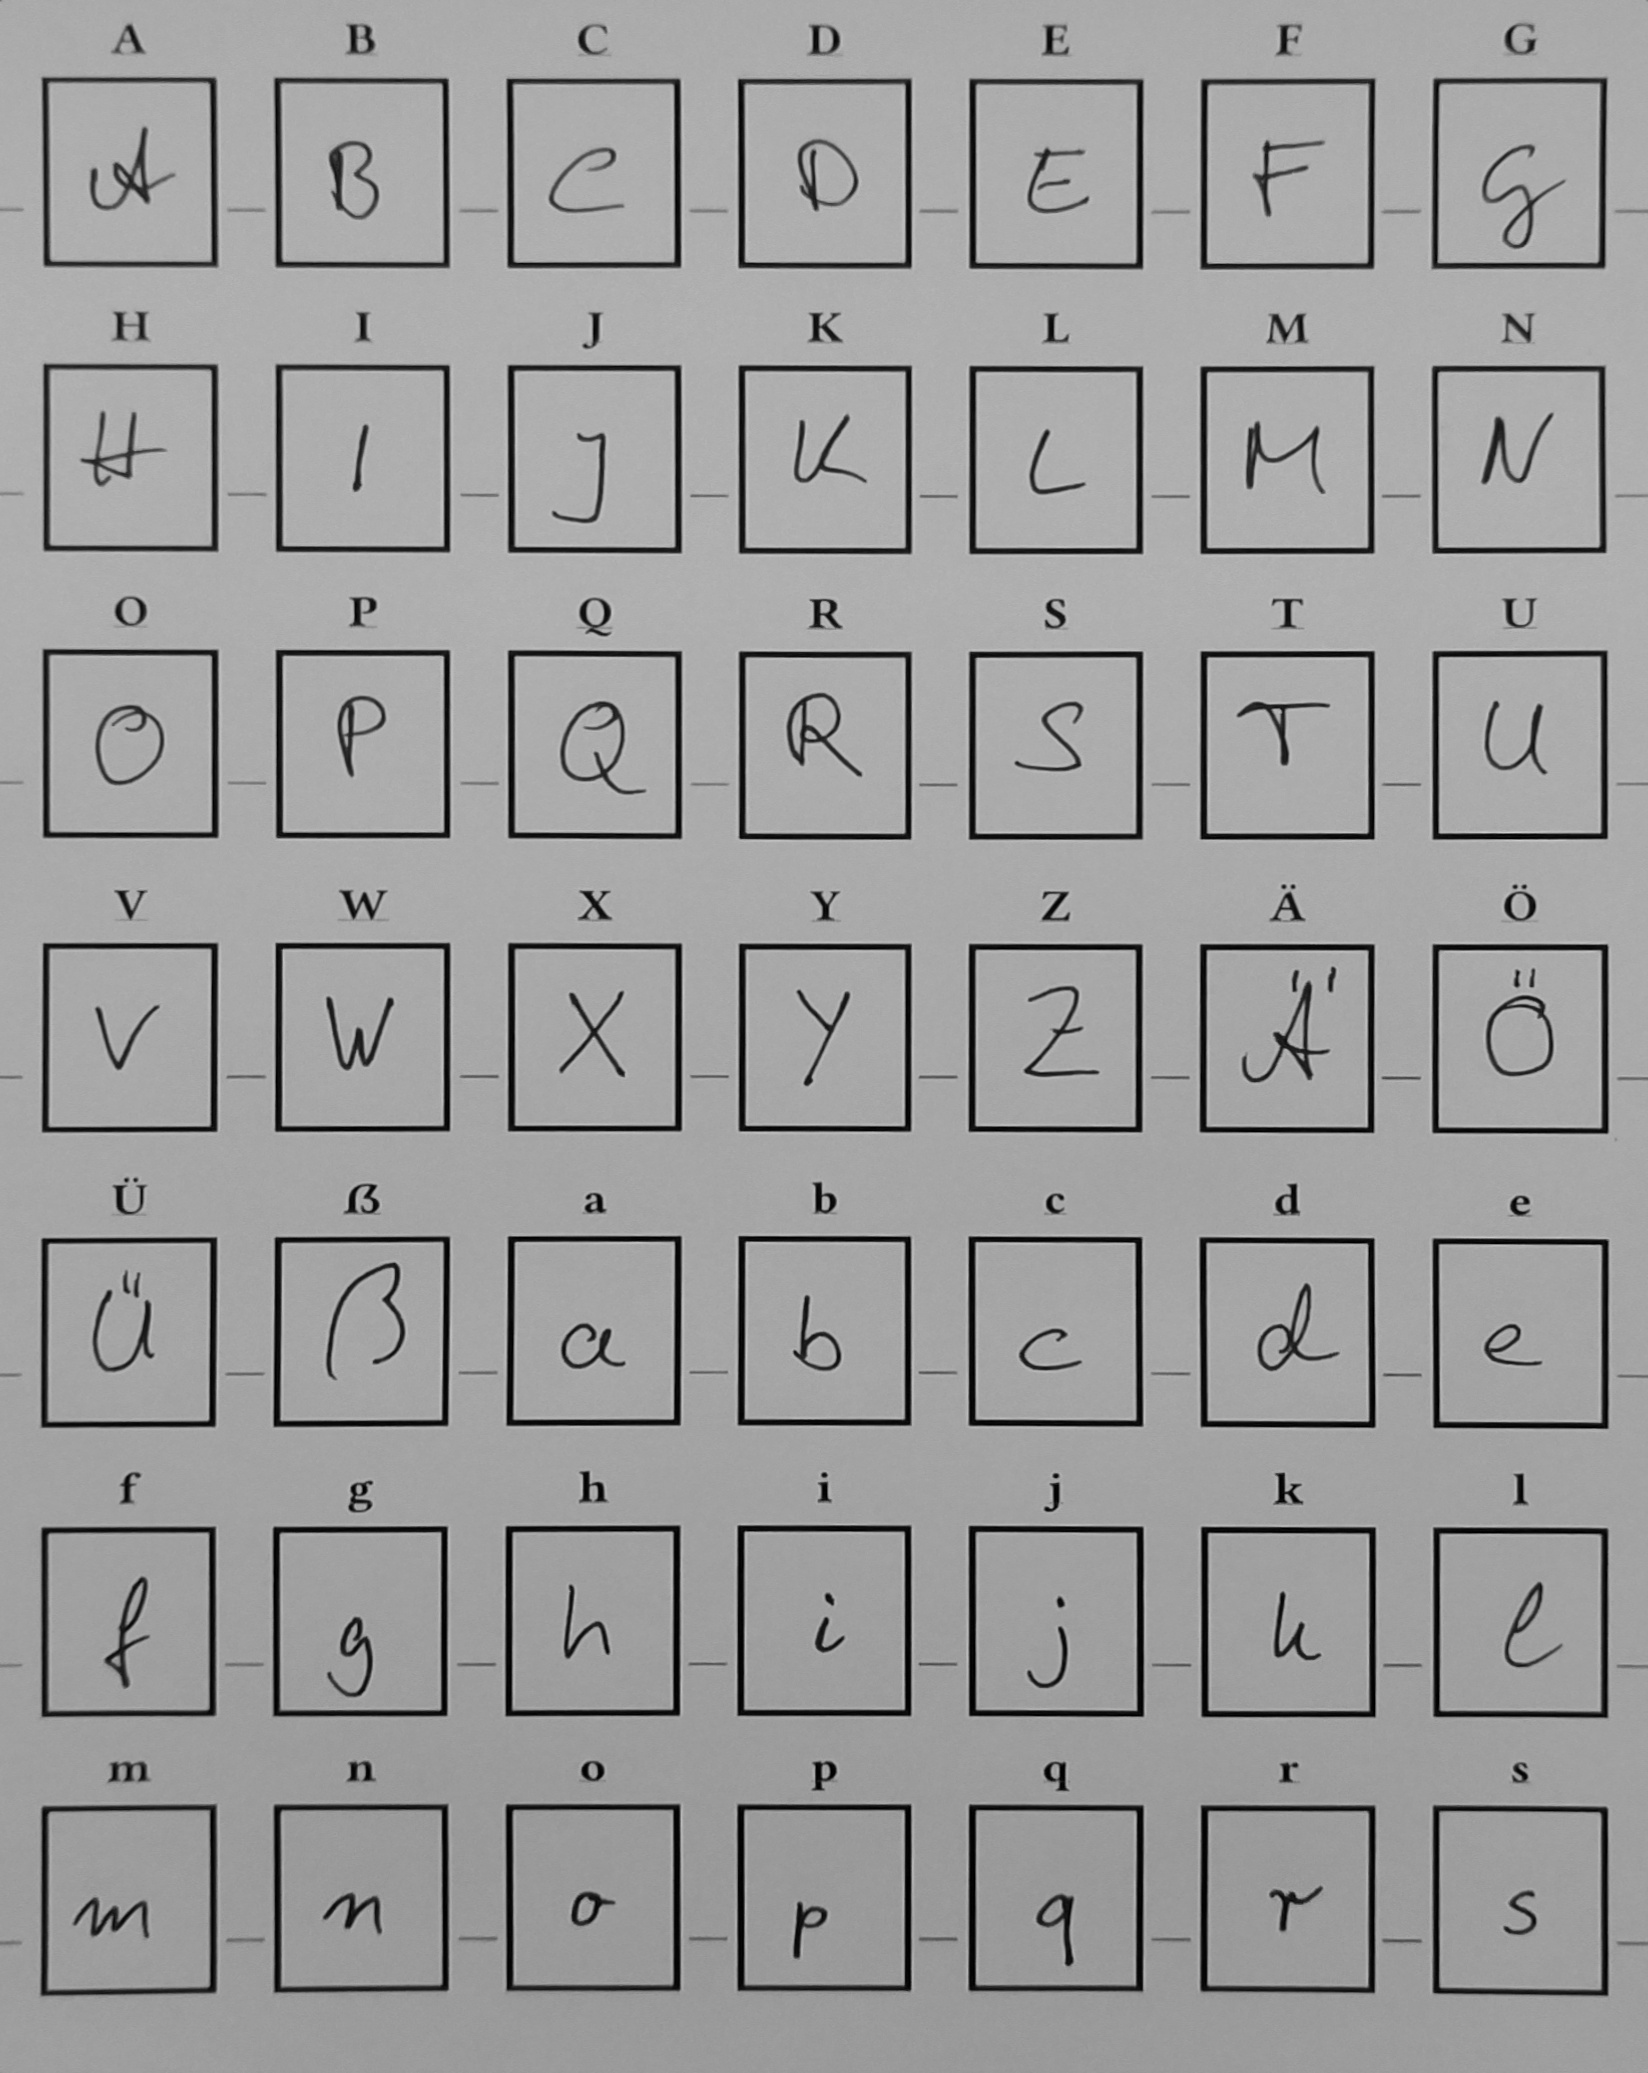 A B C D E F G
A B C D E F G
H I J K L M N
H I J K L M N
O P Q R S T U
O P Q R S T U
V W X Y Z Ä Ö
V W X Y Z Ä Ö
Ü ß a b c d e
Ü ß a b c d e
f g h i j k l
f g h i j k l
m n o p q r s
m n o p q r s